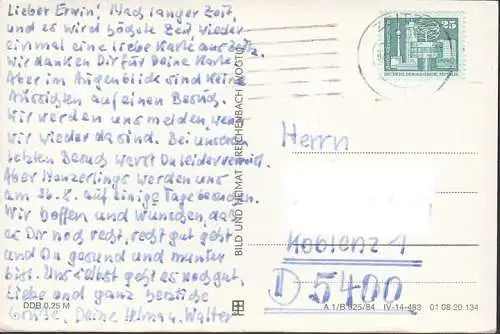 Lieber Erwin! Nach langer Zeit,
und es wird höchste Zeit wieder
einmal eine liebe Karte aus Zeitz.
Wir danken Dir für Deine Karte.
Aber im Augenblick sind keine
Aussichten auf einen Besuch.
Wir werden uns melden, wenn
wir wieder da sind. Bei unseren
letzten Besuch warst Du leider verreist.
Aber werden uns
am 26.8. auf einige Tage besuchen.
Wir hoffen und wünschen, daß
es Dir noch recht, recht gut geht
und Du gesund und munter
bist. Uns selbst geht es noch gut,
Liebe und ganz herzliche
Grüße, Deine Helma u. Walter
DDB 0,25 M
BILD UND HEIMAT REICHENBACH (VOGTL)
25
DEUTSCHE DEMOKRATISCHE REPUBLIK
Herrn
Koblenz 1
D 5400
A 1/B 625/84 IV-14-483 01 08 20 134